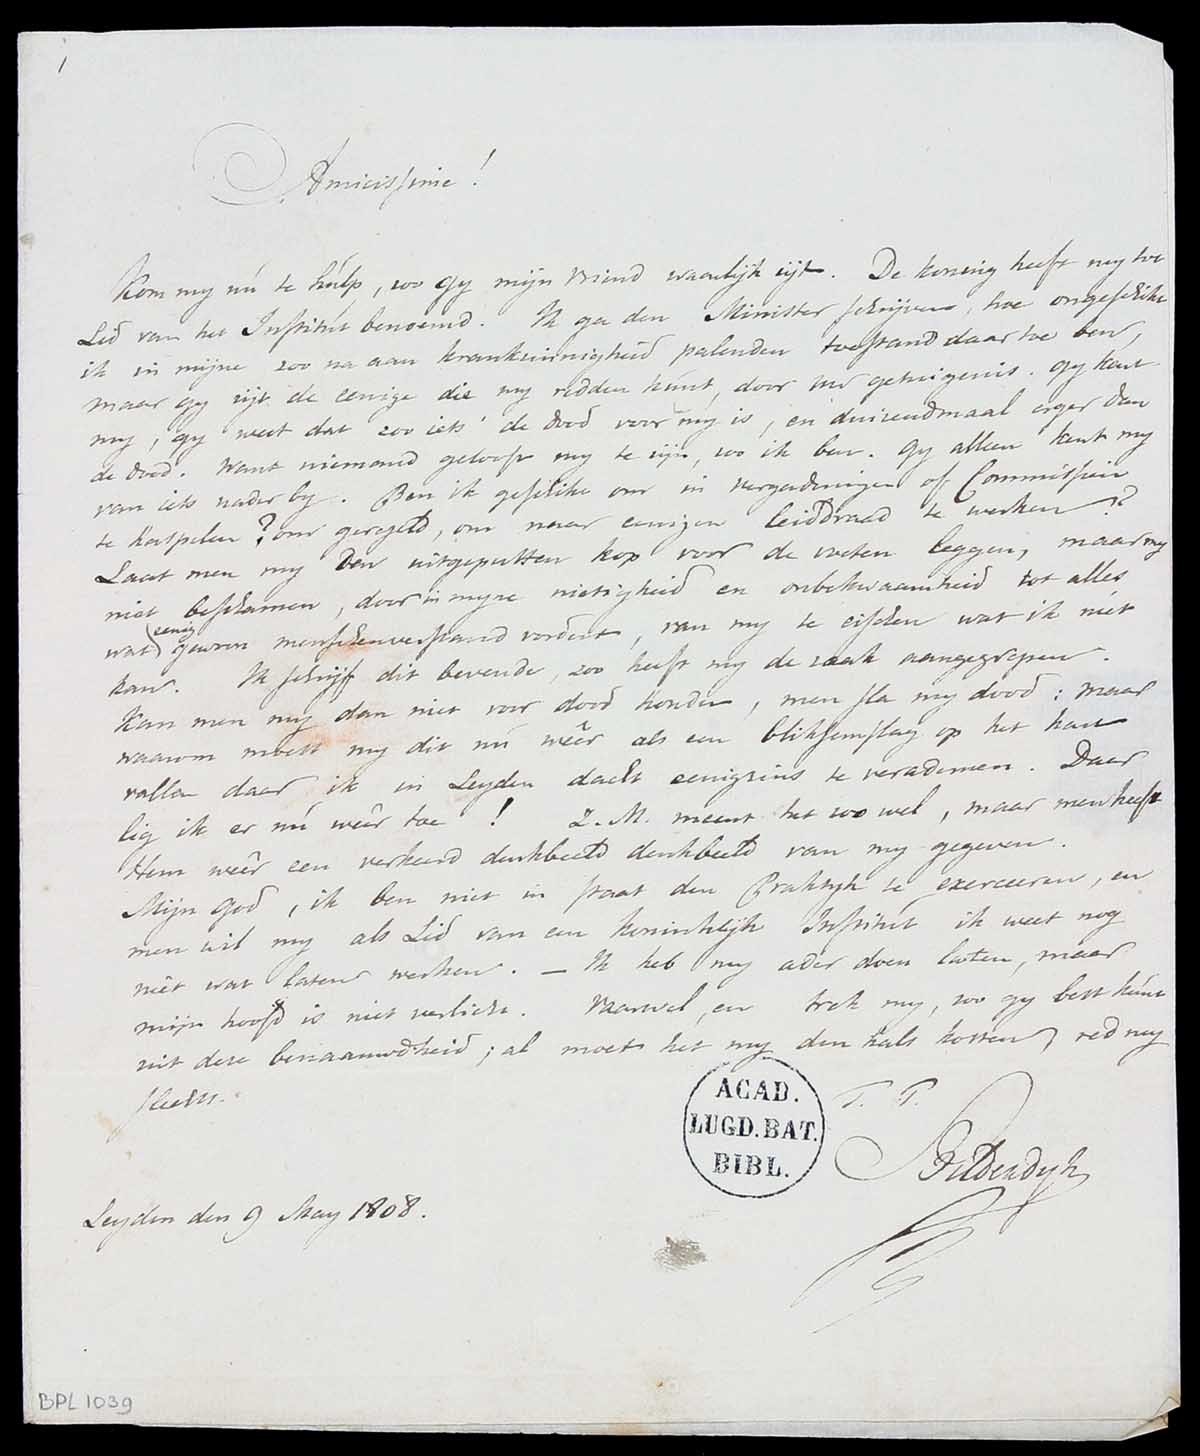 1
Amicissime!
Kom my nú te húlp, zoo gy mijn vriend waarlijk zijt. De koning heeft my tot
Lid van het Institút benoemd. Ik ga den Minister schrijven, hoe ongeschikt
ik in mijne zoo na aan krankzinnigheid palenden toestand daartoe ben,
maar gy zijt de eenige die my redden kúnt, door uw getuigenis. Gy kent
my, gy weet dat zoo iets de dood voor my is, en duizendmaal erger dan
de dood. Want niemand gelooft my te zijn, zoo ik ben. Gy alleen kent my
van iets nader by. Ben ik geschikt om in vergaderingen of Commissien
te haspelen? om geregeld, om naar eenigen leiddraad te werken?
Laat men my den uitgeputten kop voor de voeten leggen, maar my
niet beschamen, door in myne nietigheid en onbekwaamheid tot alles
wat eenig gewoon menschenverstand vordert, van my te eischen wat ik niet
kan. Ik schrijf dit bevende, zoo heeft my de zaak aangegrepen.
Kan men my dan niet voor dood houden, men sla my dood: maar
waarom moest my dit nú wêer als een bliksemslag op het hart
vallen daar ik in Leyden dacht eenigzins te verademen. Daar
lig ik er nú wêer toe! Z.M. meent het zoo wel, maar men heeft
Hem wêer een verkeerd denkbeeld denkbeeld van my gegeven.
Mijn God, ik ben niet in staat den Praktyk te exerceeren, en
men wil my als Lid van een koninklijk Institút ik weet nog
niet wat laten werken. — Ik heb my ader doen laten, maar
mijn hoofd is niet verlicht. Vaarwel, en trek my, zoo gy best kúnt
uit deze benaauwdheid; al moet het my den hals kosten, red my
slechts.
T. T.
Bilderdyk
ACAD.
LUGD.BAT.
BIBL.
Leyden den 9 May 1808.
BPL 1039